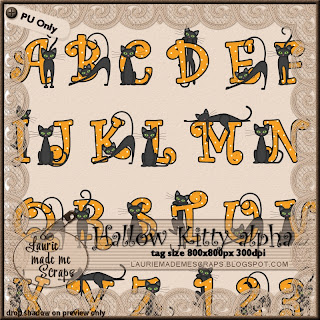 PU Only
A B C D E F
I J K L M N
S T U V
Hallow Kitty alpha
tag size 800x800px 300dpi
Laurie
made me
Scraps
LAURIEMADEMESCRAPS.BLOGSPOT.COM
Y Z 1 2 3
drop shadow on preview only